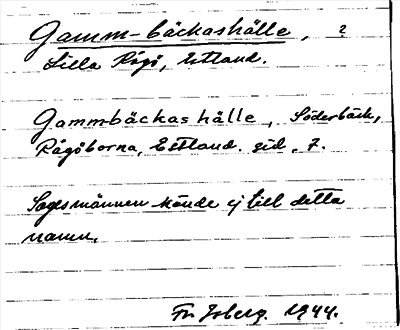 Gamm-bäckashälle, ?
Lilla Rågö, Estland.
Gammbäckas hälle, Söderbäck,
Rågöborna, Estland. sid. 7.
Sagesmännen kände ej till detta
namn.
Fr. Isberg. 1944.